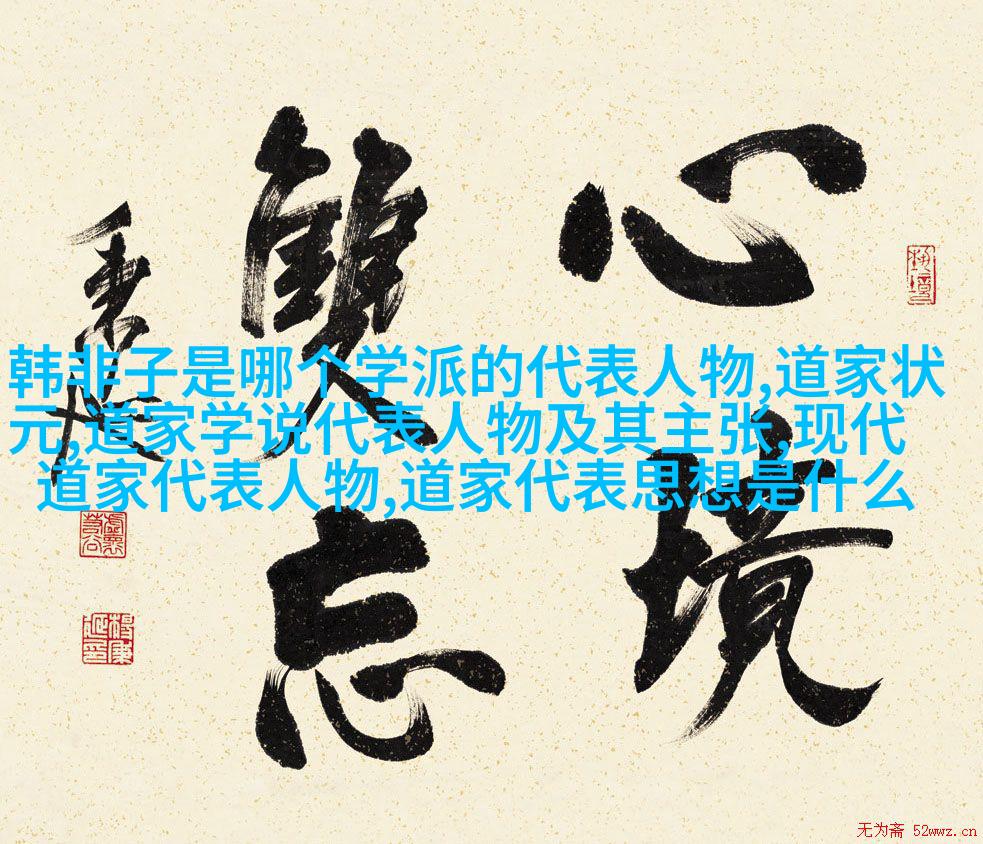 心境
雙忘
韩非子是哪个学派的代表人物,道家状
元,道家学说代表人物及其主张,现代
道家代表人物,道家代表思想是什么
无为斋 52wwz.cn